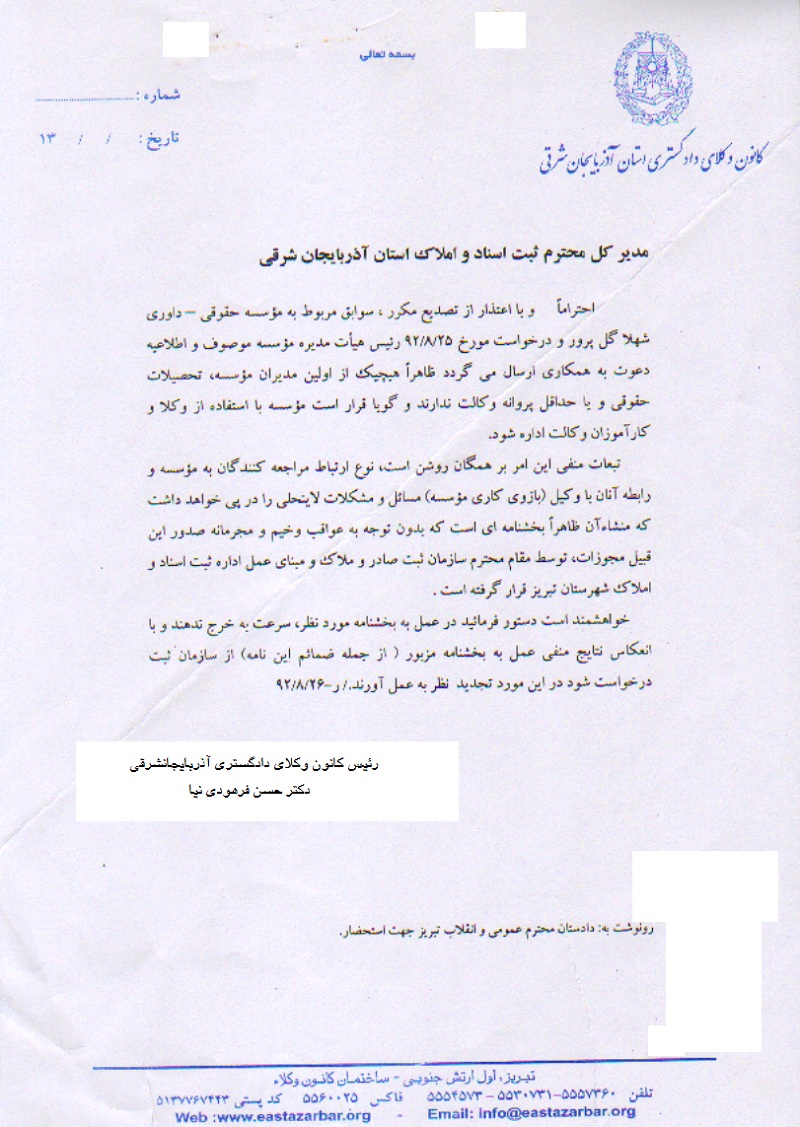 بسمه تعالی
شماره :..............................
تاریخ :     /     /     ۱۳
کانون وکلای دادگستری استان آذربایجان شرقی
مدیر کل محترم ثبت اسناد و املاک استان آذربایجان شرقی
احتراماً    و با اعتذار از تصدیع مکرر ، سوابق مربوط به مؤسسه حقوقی – داوری
شهلا گل پرور و درخواست مورخ ۹۲/۸/۲۵ رئیس هیأت مدیره مؤسسه موصوف و اطلاعیه
دعوت به همکاری ارسال می گردد ظاهراً هیچیک از اولین مدیران مؤسسه، تحصیلات
حقوقی و یا حداقل پروانه وکالت ندارند و گویا قرار است مؤسسه با استفاده از وکلا و
کارآموزان وکالت اداره شود.
تبعات منفی این امر بر همگان روشن است، نوع ارتباط مراجعه کنندگان به مؤسسه و
رابطه آنان با وکیل (بازوی کاری مؤسسه) مسائل و مشکلات لاینحلی را در پی خواهد داشت
که منشاءآن ظاهراً بخشنامه ای است که بدون توجه به عواقب وخیم و مجرمانه صدور این
قبیل مجوزات، توسط مقام محترم سازمان ثبت صادر و ملاک و مبنای عمل اداره ثبت اسناد و
املاک شهرستان تبریز قرار گرفته است .
خواهشمند است دستور فرمائید در عمل به بخشنامه مورد نظر، سرعت به خرج ندهند و با
انعکاس نتایج منفی عمل به بخشنامه مزبور ( از جمله ضمائم این نامه) از سازمان ثبت
درخواست شود در این مورد تجدید نظر به عمل آورند./ ر–۹۲/۸/۲۶
رئیس کانون وکلای دادگستری آذربایجانشرقی
دکتر حسن فرهودی نیا
رونوشت به: دادستان محترم عمومی و انقلاب تبریز جهت استحضار.
تبریز، اول ارتش جنوبی - ساختمان کانون وکلاء
تلفن ۵۵۵۷۳۶۰-۵۵۳۰۷۳۱ - ۵۵۵۴۵۷۳ فاکس ۵۵۶۰۰۲۵ کد پستی ۵۱۳۷۷۶۷۴۴۳
Web :www.eastazarbar.org - Email: info@eastazarbar.org